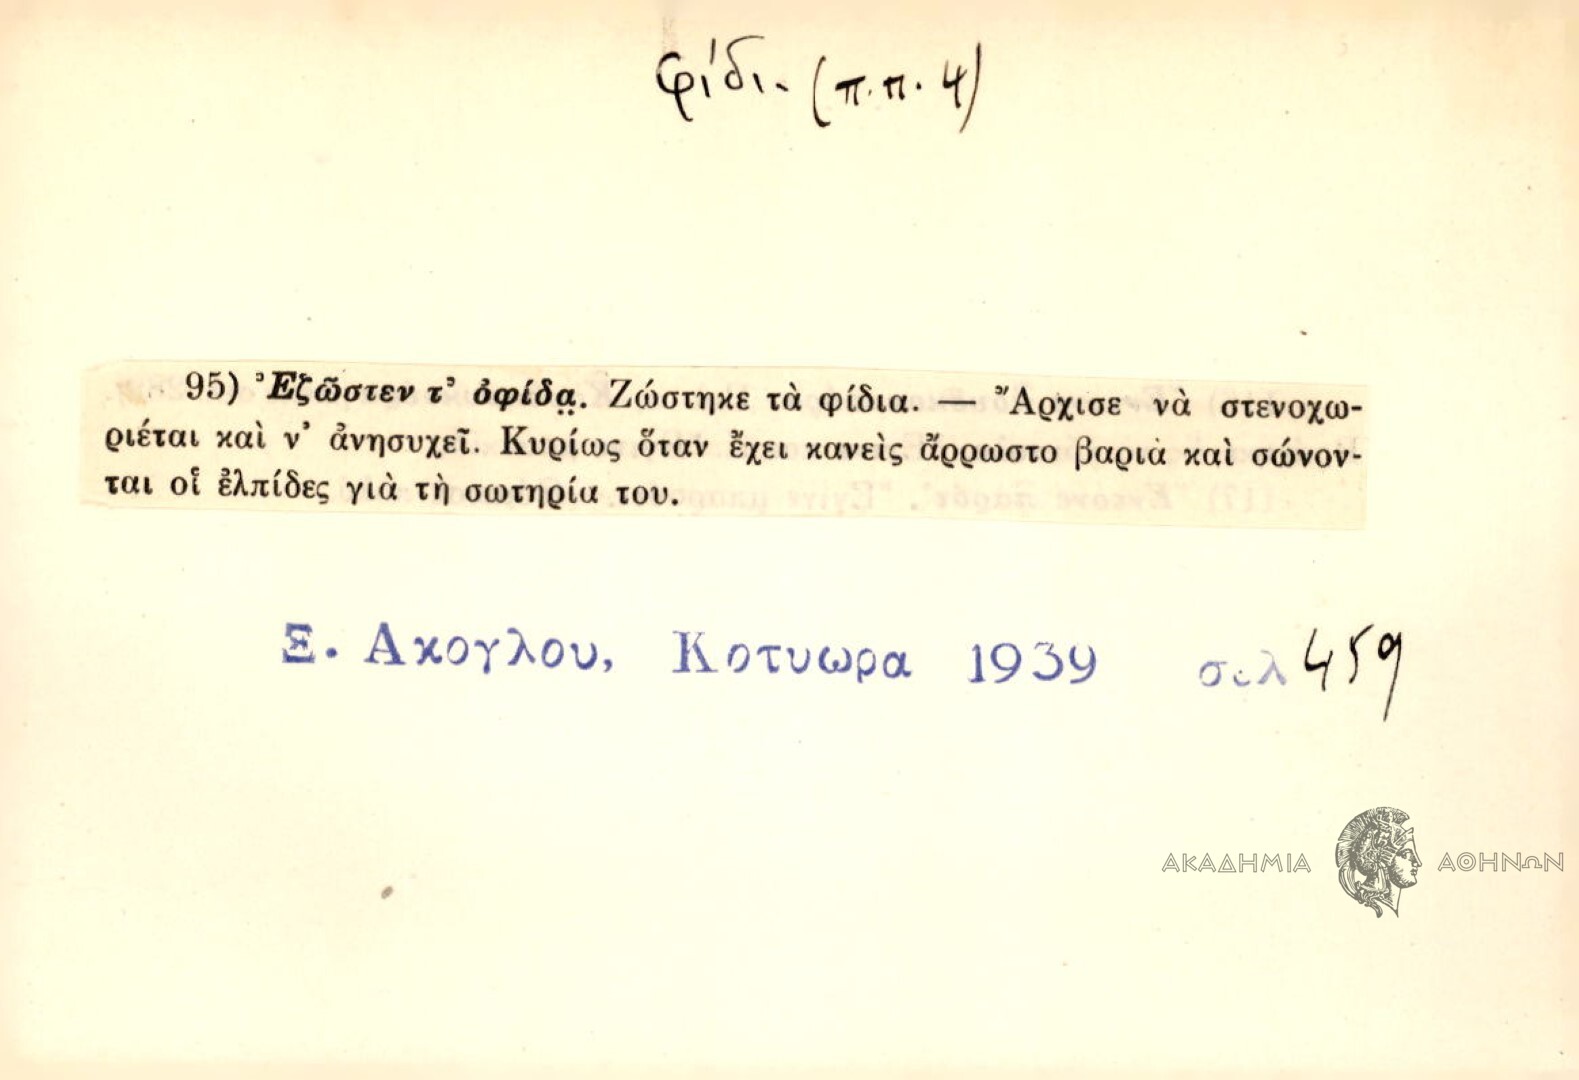 φίδι. (π.π. 4)
95) Ἐζῶστεν τ᾿ ὀφίδα̤. Ζώστηκε τὰ φίδια. — Ἄρχισε νὰ στενοχω-
ριέται καὶ ν᾿ ἀνησυχεῖ. Κυρίως ὅταν ἔχει κανεὶς ἄρρωστο βαριὰ καὶ σώνον-
ται οἱ ἐλπίδες γιὰ τὴ σωτηρία του.
Ξ. Ακογλου, Κοτυωρα 1939 σελ 459
ΑΚΑΔΗΜΙΑ ΑΘΗΝΩΝ